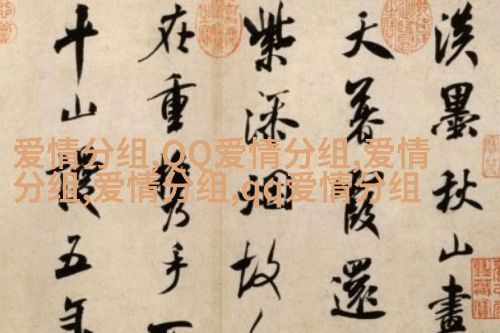 淡墨秋山畫
天暮霞還
紫添烟故
在重攜手
平山謾五年
爱情分组,QQ爱情分组,爱情
分组,爱情分组,qq爱情分组